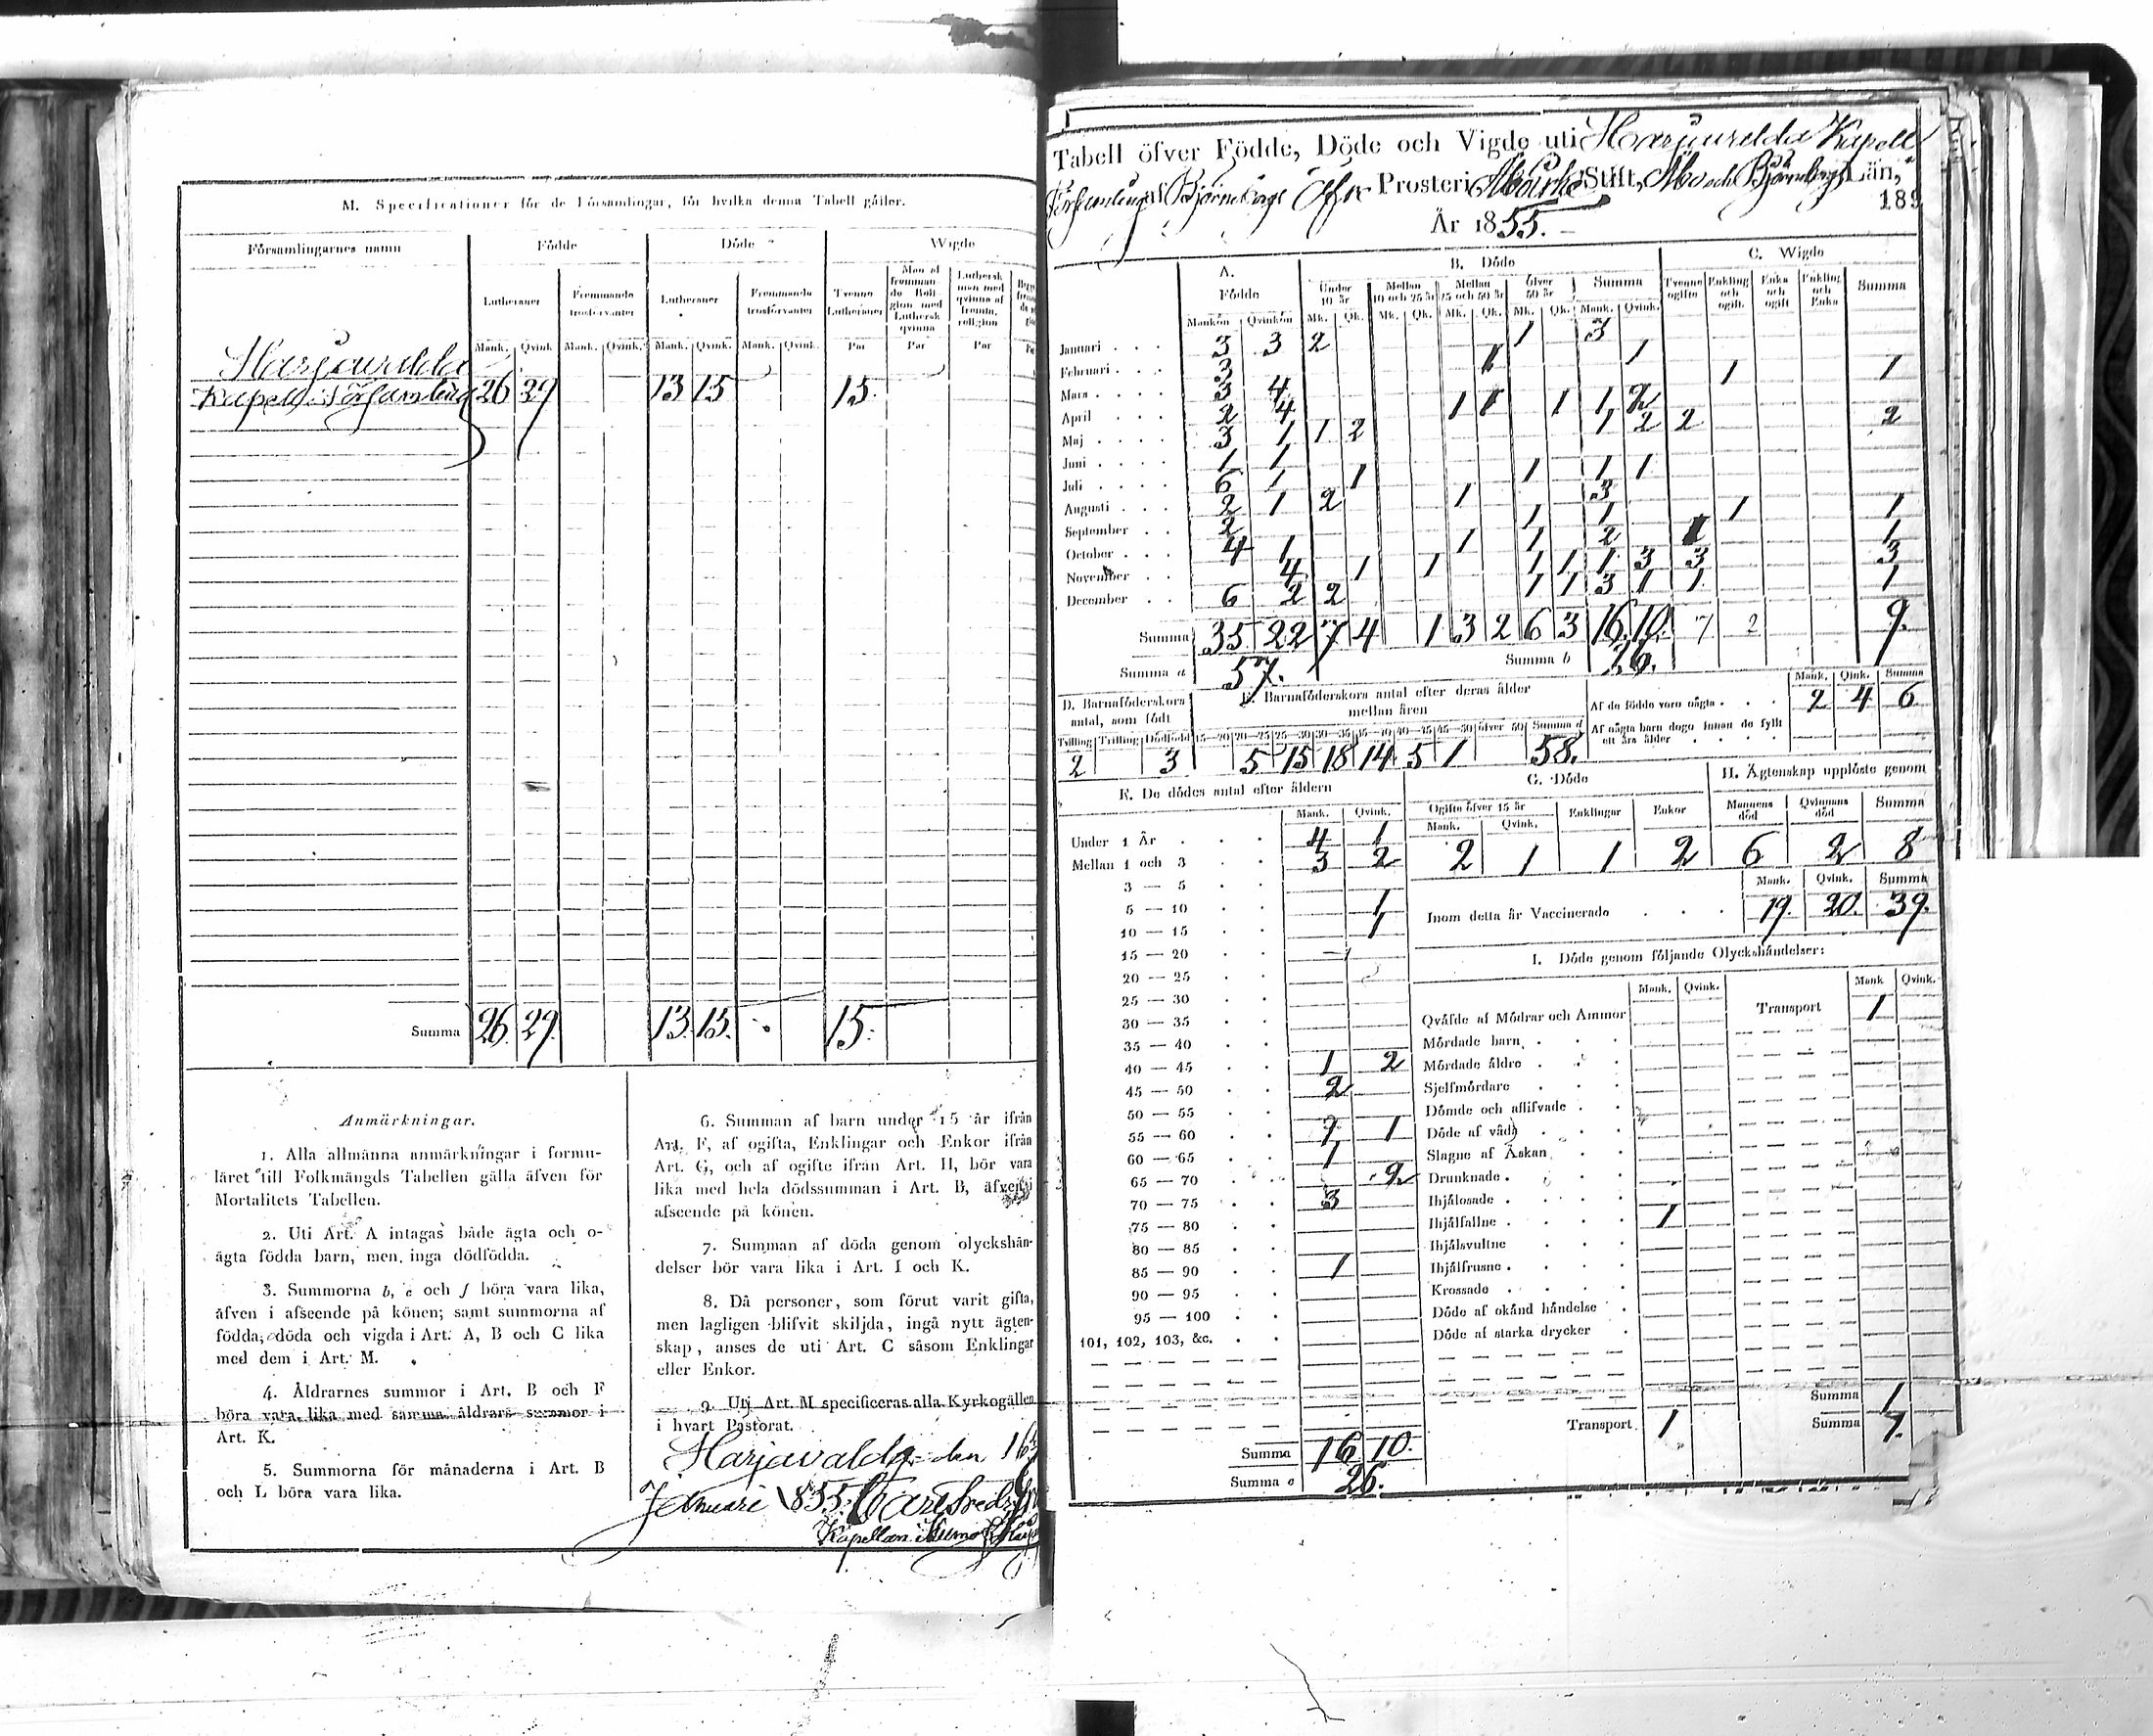 M. Specificationer för de Församlingar, för hvilka denna Tabell gäller.
Församlingarnes namn Födde Döde Wigde
Lutheraner Fremmande trosförvanter Lutheraner Fremmande trosförvanter Tvenne Lutheraner Man af fremmande Religion med Luthersk qvinna Luthersk man med qvinna af fremm. religion
Mank. Qvink. Mank. Qvink. Mank. Qvink. Mank. Qvink. Par Par Par
Harjawalda
Kapell-församling 26 29 13 15 15.
Summa 26. 29. 13. 15. 15.
Anmärkningar.
1. Alla allmänna anmärkningar i formu-
läret till Folkmängds Tabellen gälla äfven för
Mortalitets Tabellen.
2. Uti Art. A intagas både ägta och o-
ägta födda barn, men inga dödfödda.
3. Summorna b, c och f böra vara lika,
äfven i afseende på könen; samt summorna af
födda, döda och vigda i Art. A, B och C lika
med dem i Art. M.
4. Åldrarnes summor i Art. B och F
böra vara lika med samma åldrars summor i
Art. K.
5. Summorna för månaderna i Art. B
och L böra vara lika.
6. Summan af barn under 15 år ifrån
Art. F, af ogifta, Enklingar och Enkor ifrån
Art. G, och af ogifte ifrån Art. H, bör vara
lika med hela dödssumman i Art. B, äfven i
afseende på könen.
7. Summan af döda genom olyckshän-
delser bör vara lika i Art. I och K.
8. Då personer, som förut varit gifta,
men lagligen blifvit skiljda, ingå nytt ägten-
skap, anses de uti Art. C såsom Enklingar
eller Enkor.
9. Uti Art. M specificeras alla Kyrkogällen
i hvart Pastorat.
Harjawalda den 16
Januari 1855. Carl Fredr
Kapellan i
Tabell öfver Födde, Döde och Vigde uti Harjawalda Kapell
Församling af Björneborgs Öfre Prosteri Åbo Ärke Stift, Åbo och Björneborgs Län,
189
År 1855.
A. Födde B. Döde C. Wigde
Under 10 år Mellan 10 och 25 år Mellan 25 och 50 år öfver 50 år Summa Tvenne ogifte Enkling och ogift. Enka och ogift Enkling och Enka Summa
Mankön Qvinkön Mk. Qk. Mk. Qk. Mk. Qk. Mk. Qk. Mank. Qvink.
Januari 3 3 2 1 3
Februari 3 1 1
Mars 3 4 1 1
April 2 4 1 1 1 1 2
Maj 3 1 1 2 1 2 2 2
Juni 1 1
Juli 6 1 1 1 1 1
Augusti 2 1 2 1 3
September 2 1 1 1 1
October 4 1 1 1 2 1 1
November 4 1 1 1 1 1 3 3 3
December 6 2 2 1 1 3 1 1 1
Summa 35 22 7 4 1 3 2 6 3 16 10. 7 2 9.
Summa a 57. Summa b 26.
D. Barnaföderskors antal, som födt
E. Barnaföderskors antal efter deras ålder mellan åren
Mank. Qink. Summa
Af de födde voro oägta 2 4 6
Af oägta barn dogo innan de fyllt ett års ålder
Tvilling Trilling Dödfödd 15—20 20—25 25—30 30—35 35—40 40—45 45—50 öfver 50 Summa d
2 3 5 15 18 14 5 1 58.
F. De dödes antal efter åldern
Mank. Qvink.
Under 1 År 4 1
Mellan 1 och 3 3 2
3 — 5
5 — 10 1
10 — 15 1
15 — 20
20 — 25
25 — 30
30 — 35
35 — 40
40 — 45 1 2
45 — 50 2
50 — 55
55 — 60 1
60 — 65 1
65 — 70 2
70 — 75 3
75 — 80
80 — 85
85 — 90 1
90 — 95
95 — 100
101, 102, 103, &c.
Summa 16 10.
Summa c 26.
G. Döde
Ogifte öfver 15 år Enklingar Enkor
Mank. Qvink.
2 1 1 2
H. Ägtenskap upplöste genom
Mannens död Qvinnans död Summa
6 2 8
Mank. Qvink. Summa
Inom detta år Vaccinerade 19. 20. 39.
I. Döde genom följande Olyckshändelser:
Mank. Qvink. Mank Qvink.
Qväfde af Mödrar och Ammor Transport 1
Mördade barn
Mördade äldre
Sjelfmördare
Dömde och aflifvade
Döde af våda
Slagne af Åskan
Drunknade
Ihjälosade
Ihjälfallne 1
Ihjälsvultne
Ihjälfrusne
Krossade
Döde af okänd händelse
Döde af starka drycker
Summa 1
Transport 1 Summa 1.